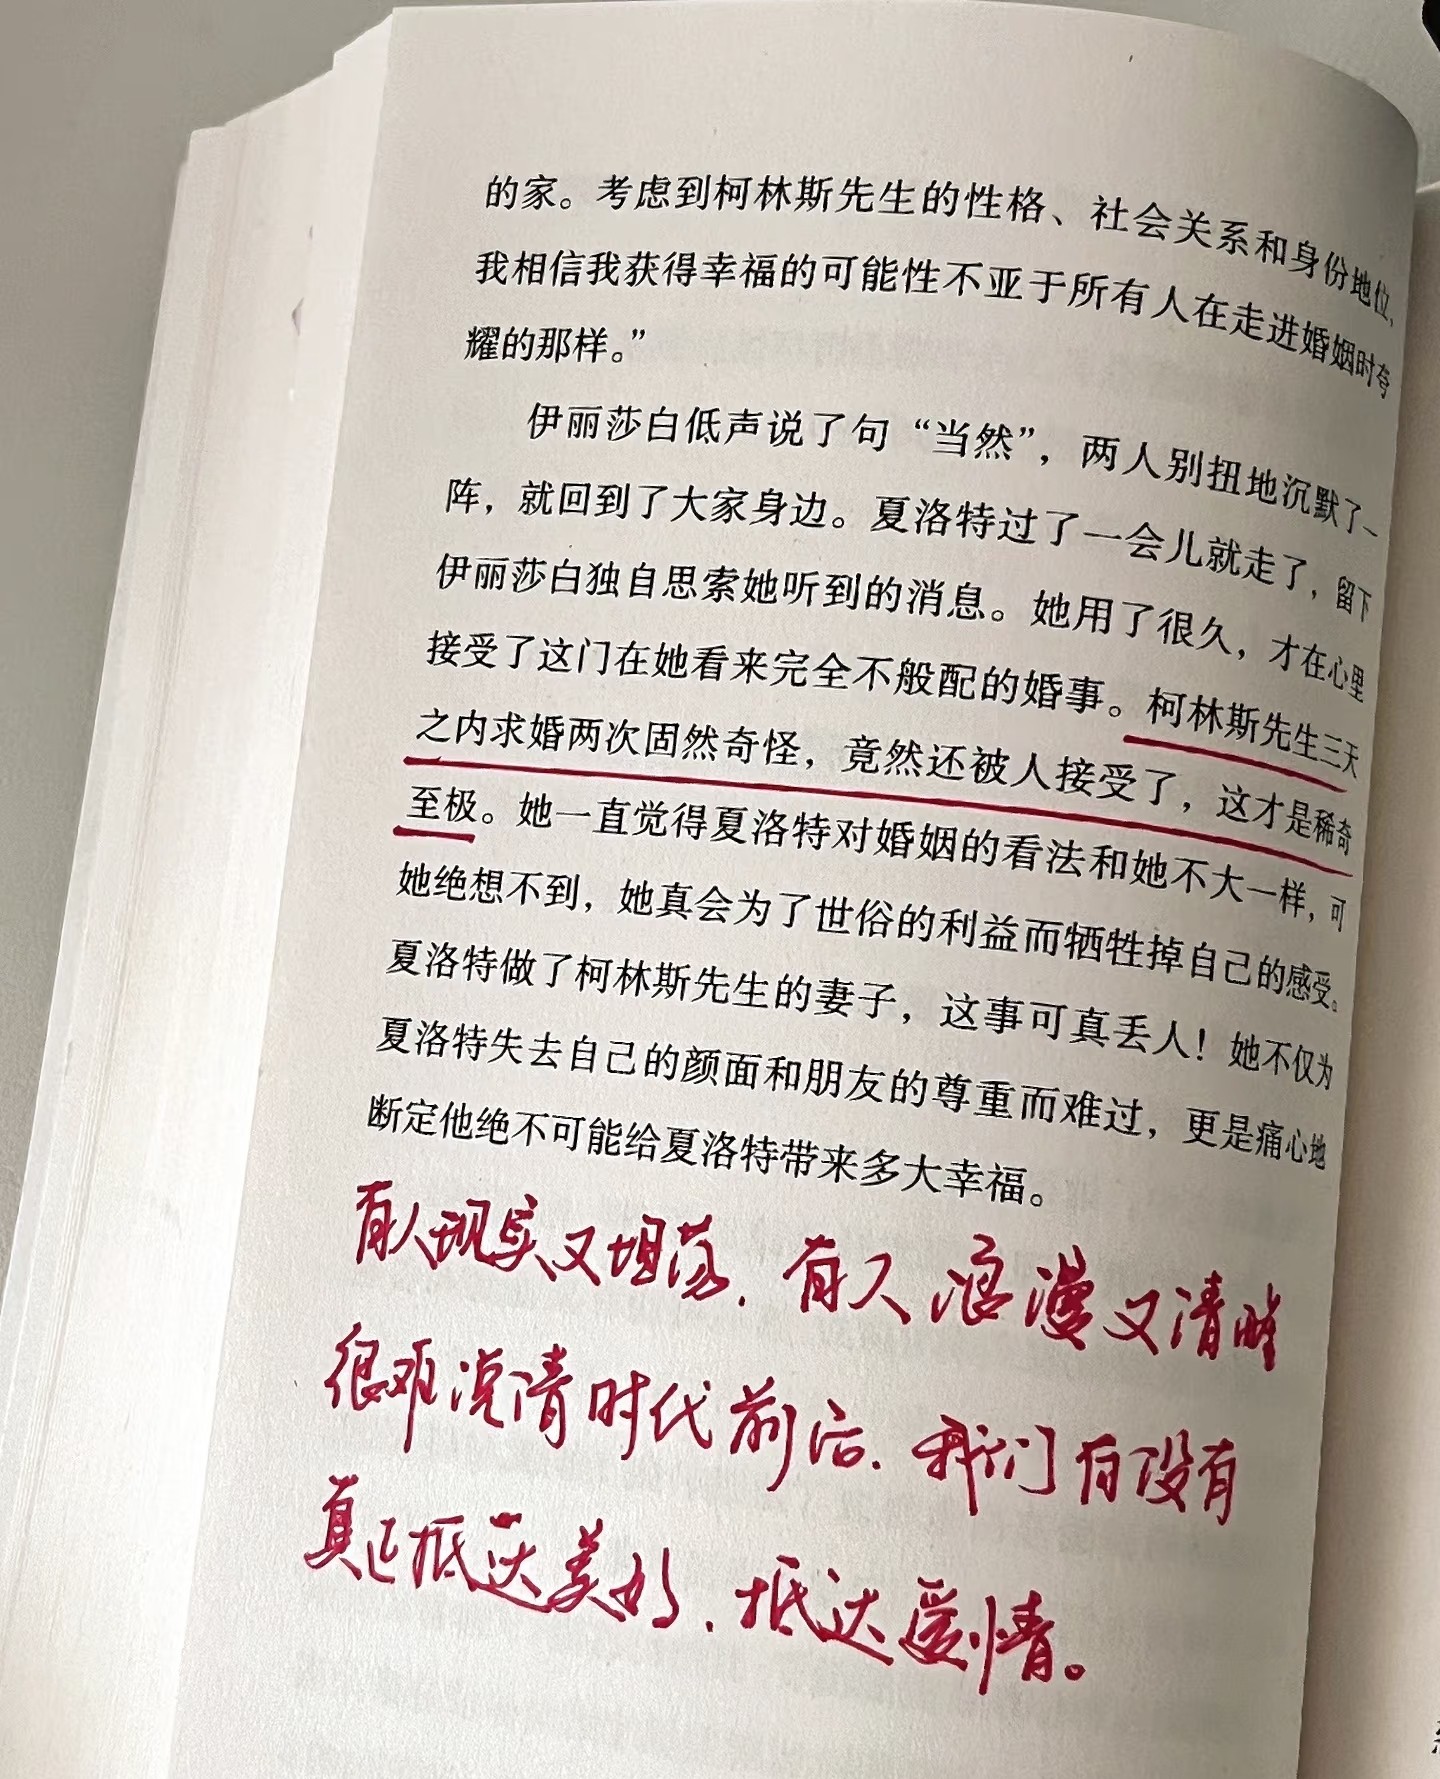 的家。考虑到柯林斯先生的性格、社会关系和身份地位，
我相信我获得幸福的可能性不亚于所有人在走进婚姻时夸
耀的那样。”
伊丽莎白低声说了句“当然”，两人别扭地沉默了一
阵，就回到了大家身边。夏洛特过了一会儿就走了，留下
伊丽莎白独自思索她听到的消息。她用了很久，才在心里
接受了这门在她看来完全不般配的婚事。柯林斯先生三天
之内求婚两次固然奇怪，竟然还被人接受了，这才是稀奇
至极。她一直觉得夏洛特对婚姻的看法和她不大一样，可
她绝想不到，她真会为了世俗的利益而牺牲掉自己的感受。
夏洛特做了柯林斯先生的妻子，这事可真丢人！她不仅为
夏洛特失去自己的颜面和朋友的尊重而难过，更是痛心地
断定他绝不可能给夏洛特带来多大幸福。
有人现实又坦荡.有人浪漫又清醒
很难说清时代前后.我们有没有
真正抵达美好.抵达爱情。